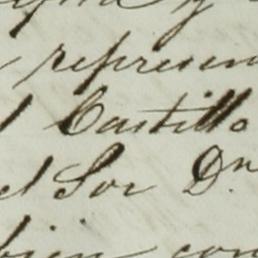 represen
l Castillo
el Sor Dn
bien con